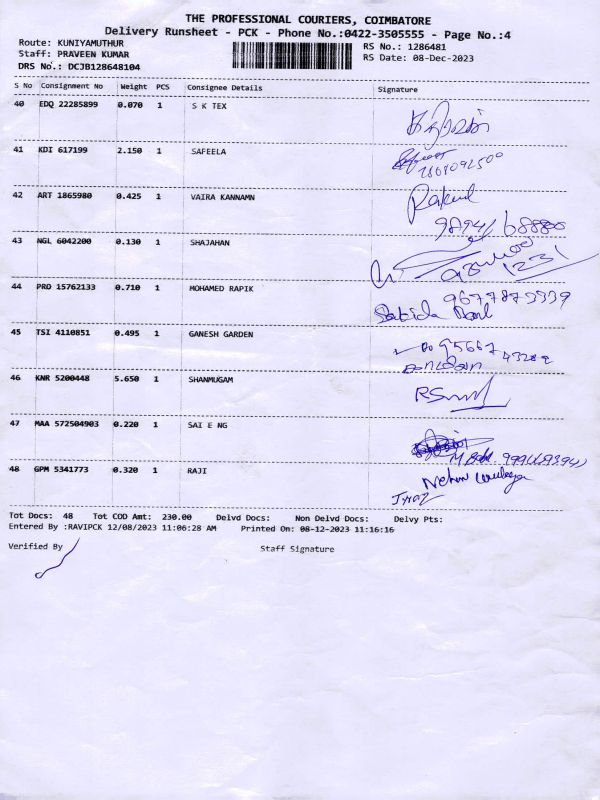 THE PROFESSIONAL COURIERS, COIMBATORE
Delivery Runsheet - PCK - Phone No.:0422-3505555 - Page No.:4
Route: KUNIYAMUTHUR
RS No.: 1286481
Staff: PRAVEEN KUMAR
RS Date: 08-Dec-2023
DRS No.: DCJB128648104
S No Consignment No Weight PCS Consignee Details Signature
40 EDQ 22285899 0.070 1 S K TEX
41 KDI 617199 2.150 1 SAFEELA
42 ART 1865980 0.425 1 VAIRA KANNAMN
43 NGL 6042200 0.130 1 SHAJAHAN
1231
44 PRD 15762133 0.710 1 MOHAMED RAPIK
45 TSI 4110851 0.495 1 GANESH GARDEN
46 KNR 5200448 5.650 1 SHANMUGAM
47 MAA 572504903 0.220 1 SAI E NG
48 GPM 5341773 0.320 1 RAJI
Tot Docs: 48 Tot COD Amt: 230.00 Delvd Docs: Non Delvd Docs: Delvy Pts:
Entered By :RAVIPCK 12/08/2023 11:06:28 AM Printed On: 08-12-2023 11:16:16
Verified By
Staff Signature